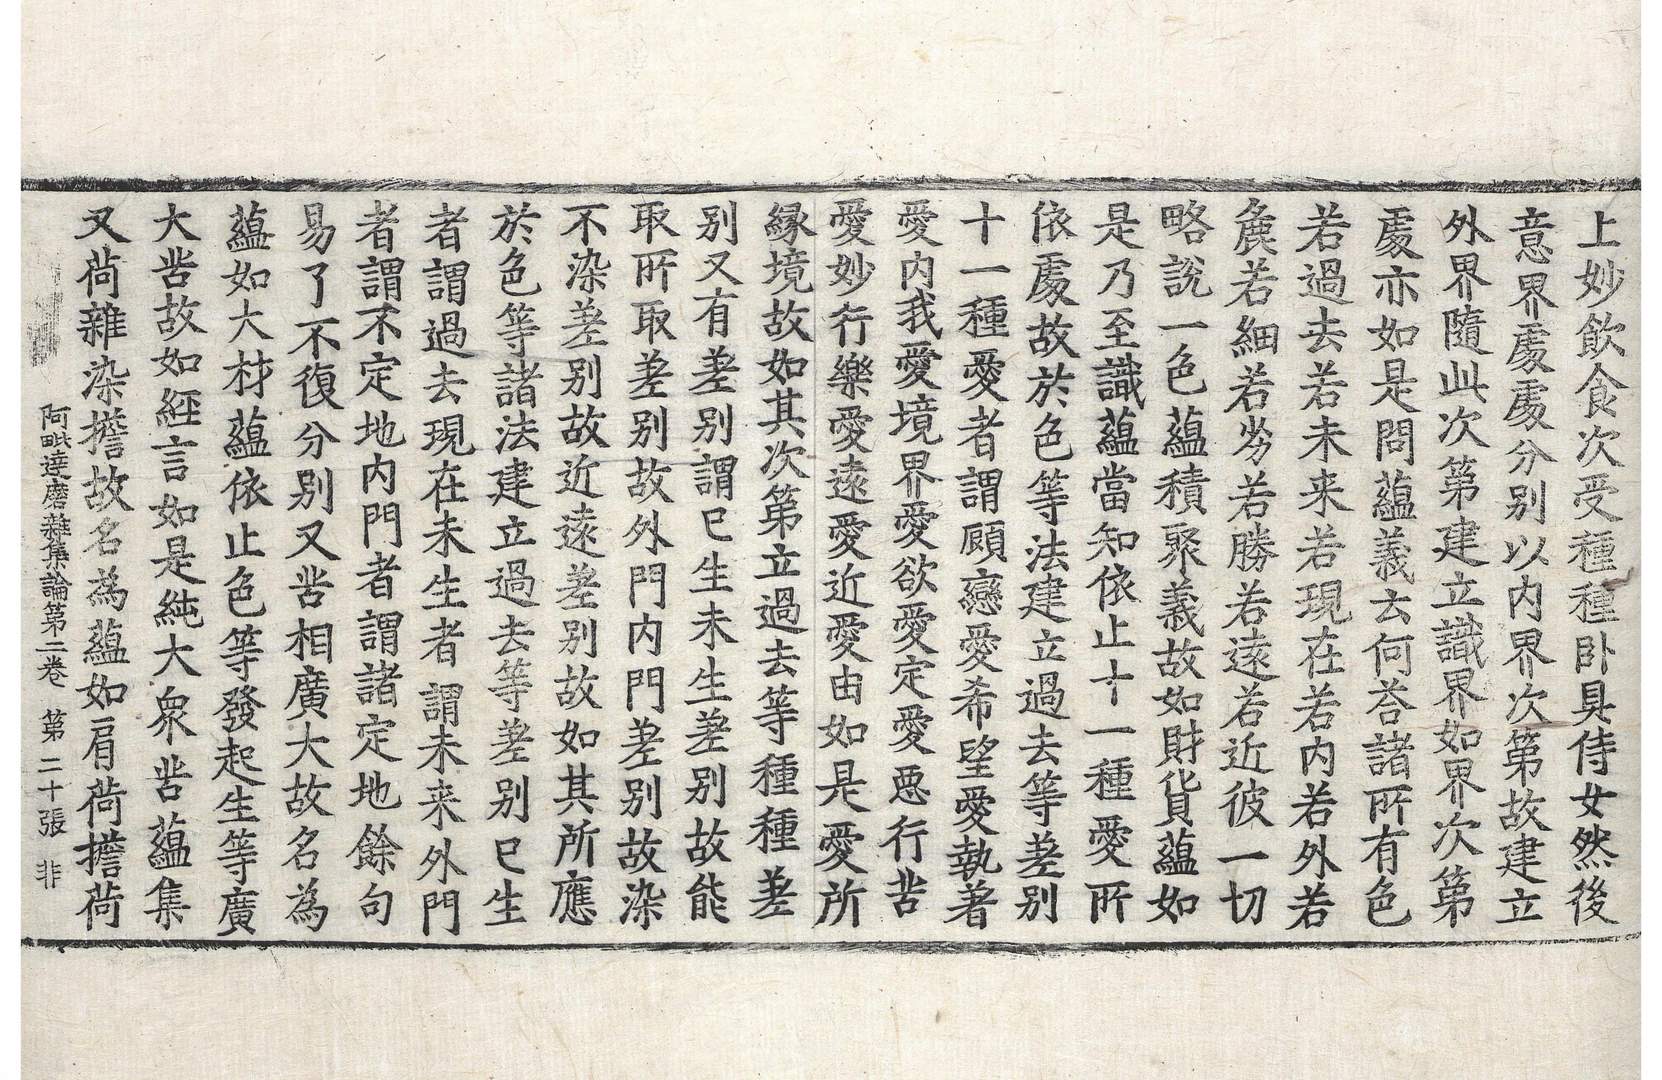 上妙飲食次受種種卧具侍女然後
意界處處分別以内界次第故建立
外界隨此次第建立識界如界次第
處亦如是問蘊義云何荅諸所有色
若過去若未来若現在若内若外若
麁若細若劣若勝若遠若近彼一切
略說一色蘊積聚義故如財貨蘊如
是乃至識蘊當知依止十一種愛所
依處故於色等法建立過去等差别
十一種愛者謂顧戀愛希望愛執著
愛内我愛境界愛欲愛定愛惡行苦
愛妙行樂愛遠愛近愛由如是愛所
緣境故如其次第立過去等種種差
别又有差别謂已生未生差别故能
取所取差别故外門内門差别故染
不染差别故近遠差别故如其所應
於色等諸法建立過去等差别已生
者謂過去現在未生者謂未来外門
者謂不定地内門者謂諸定地餘句
易了不復分別又苦相廣大故名為
蘊如大材蘊依止色等發起生等廣
大苦故如經言如是純大衆苦蘊集
又荷雜染擔故名為蘊如肩荷擔荷
阿毗達磨雜集論第二卷 第二十張 非